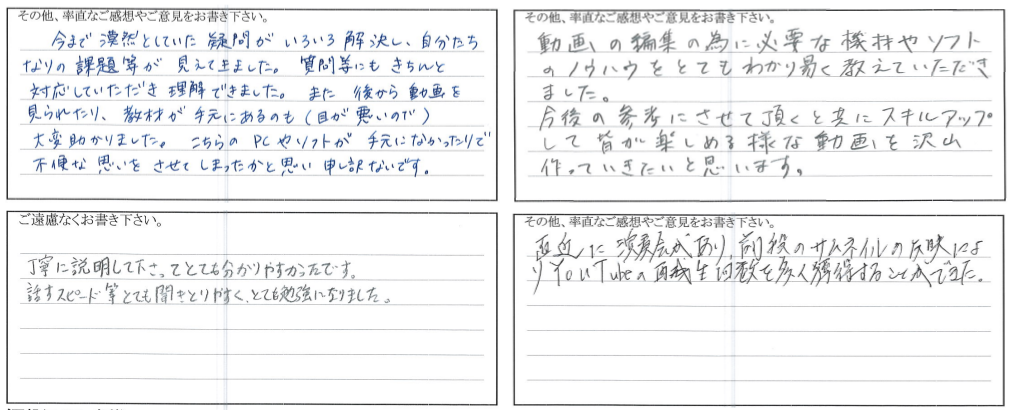 その他、率直なご感想やご意見をお書き下さい。
今まで漠然としていた疑問がいろいろ解決し、自分たち
なりの課題等が見えて来ました。質問等にもきちんと
対応していただき理解できました。また後から動画を
見られたり、教材が手元にあるのも(目が悪いので)
大変助かりました。こちらのPCやソフトが手元になかったりで
不便な思いをさせてしまったかと思い申し訳ないです。
その他、率直なご感想やご意見をお書き下さい。
動画の編集の為に必要な機材やソフト
のノウハウをとてもわかり易く教えていただき
ました。
今後の参考にさせて頂くと共にスキルアップ
して皆が楽しめる様な動画を沢山
作っていきたいと思います。
ご遠慮なくお書き下さい。
丁寧に説明して下さってとても分かりやすかったです。
話すスピード等とても聞きとりやすく、とても勉強になりました。
その他、率直なご感想やご意見をお書き下さい。
直近に演奏会があり、前役のサムネイルの反映によ
りYouTubeの再生回数を多く獲得することができた。